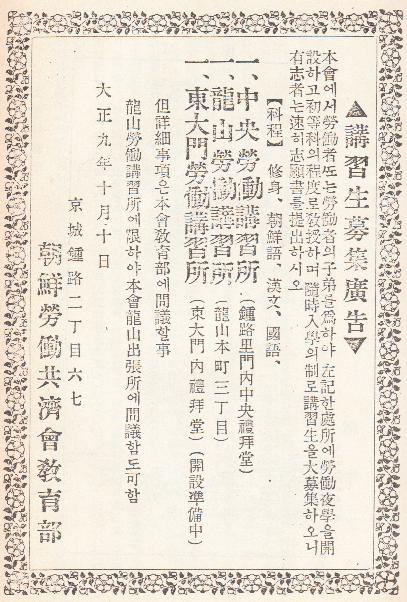 ▲講習生募集廣告▼
本會에서勞働者又는勞働者의子弟를爲하야左記한處所에勞働夜學을開
設하고初等科의程度로敎授하며隨時入學의制로講習生을大募集하오니
有志者는速히志願書를提出하시오
【科程】 修身、朝鮮語、漢文、國語、
一、中央勞働講習所(鍾路里門內中央禮拜堂)
一、龍山勞働講習所(龍山本町三丁目)
一、東大門勞働講習所(東大門內禮拜堂)(開設準備中)
但詳細事項은本會敎育部에問議할事
龍山勞働講習所에限하야本會龍山出張所에問議함도可함
大正九年十月十日
京城鍾路二丁目六七
朝鮮勞働共濟會敎育部